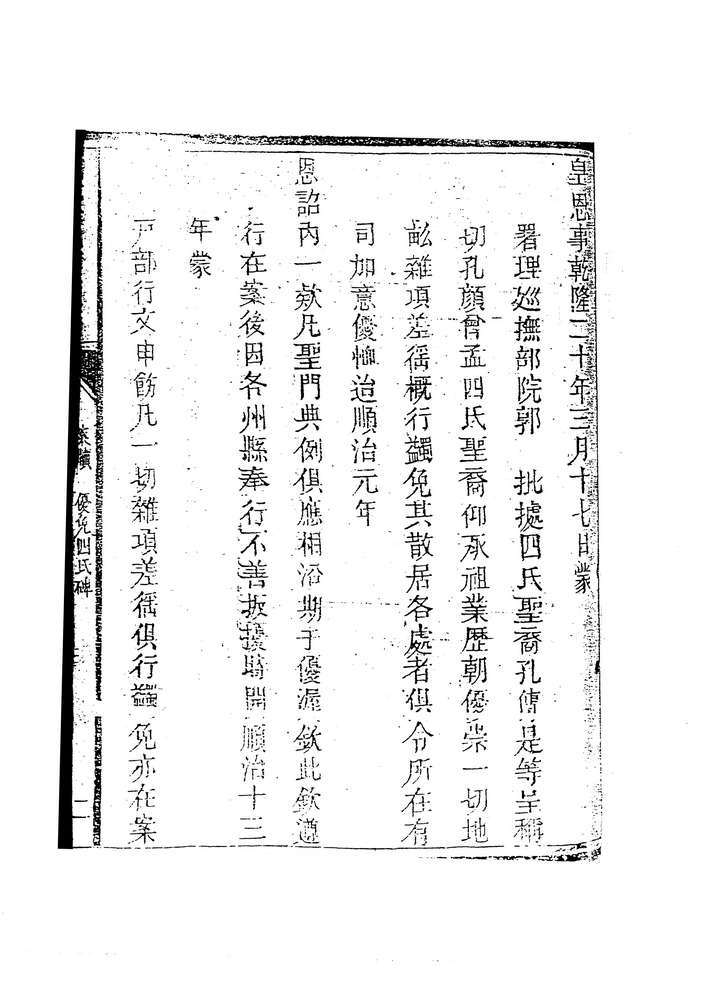 皇恩事乾隆二十年三月十七日蒙
署理廵撫部院郭　批據四氏聖裔孔傳是等呈稱
切孔顔曾孟四氏聖裔仰承祖業歷朝優崇一切地
畝雜項差徭概行蠲免其散居各處者俱令所在有
司加意優恤迨順治元年
恩詔內一欵凡聖門典例俱應相沿期于優渥欽此欽遵
行在案後因各州縣奉行不善扳擾時聞順治十三
年蒙
戸部行文申飭凡一切雜項差徭俱行蠲免亦在案
優免四氏碑
二